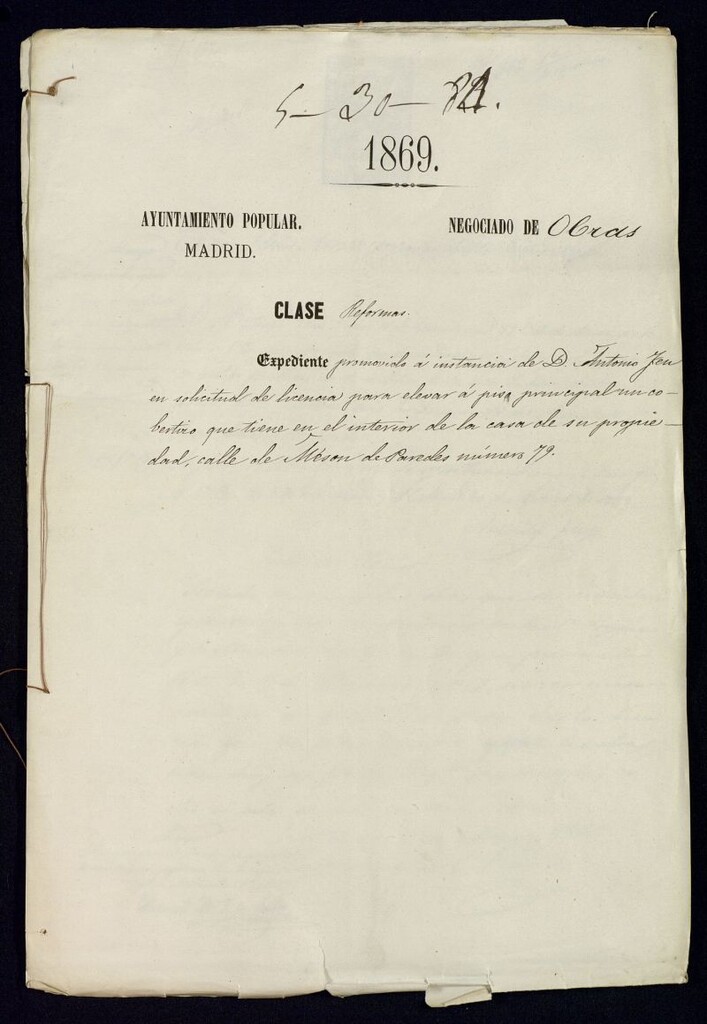 5-30-81.
1869.
AYUNTAMIENTO POPULAR.
MADRID.
NEGOCIADO DE Obras
CLASE Reformas.
Expediente promovido á instancia de D. Antonio
en solicitud de licencia para elevar á piso principal un co-
bertizo que tiene en el interior de la casa de su propie-
dad, calle de Meson de Paredes número 79.